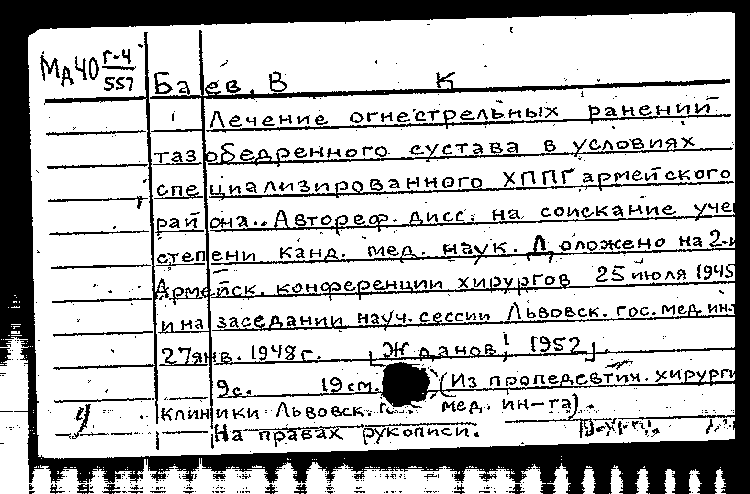 МА40 Г-4/557
Баев, В К
Лечение огнестрельных ранений
тазобедренного сустава в условиях
специализированного ХППГ армейского
района.. Автореф. дисс. на соискание уче
степени канд. мед. наук. Доложено на 2-
Армейск. конференции хирургов 25 июля 1945
и на заседании науч. сессии Львовск. гос. мед. ин-
27 янв. 1948 г. [Жданов, 1952].
9с. 19 см. (Из пропедевтич. хирурги
клиники Львовск. мед. ин-та).
На правах рукописи.